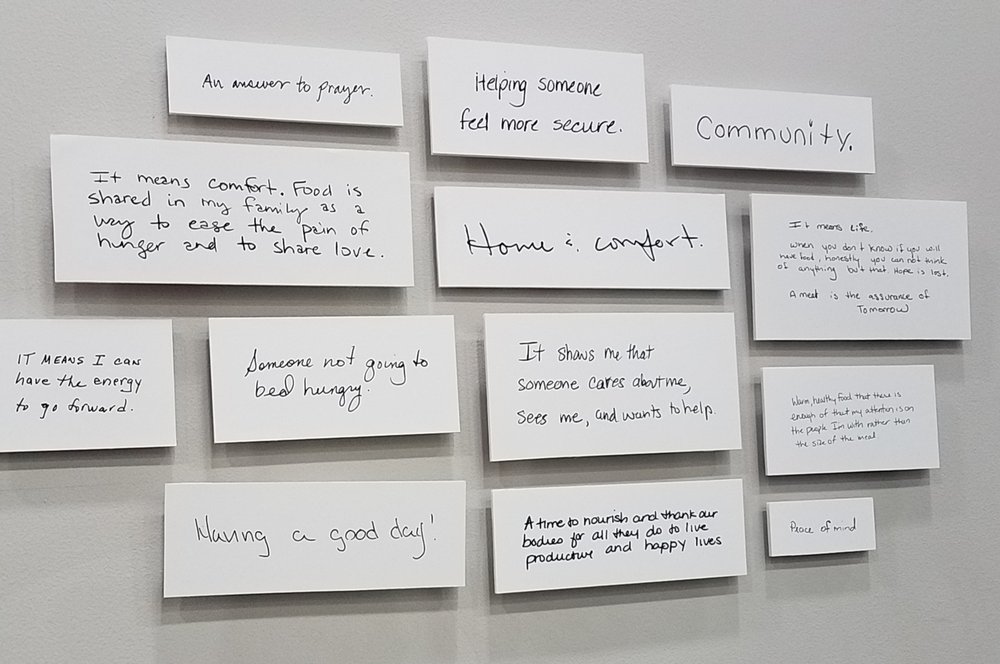 An answer to prayer.
Helping someone
feel more secure.
Community.
It means comfort. Food is
shared in my family as a
way to ease the pain of
hunger and to share love.
Home & comfort.
It means life.
When you don't know if you will
have food, honestly you can not think
of anything but that. Hope is lost.
A meal is the assurance of
Tomorrow
IT MEANS I CAN
have the energy
to go forward.
Someone not going to
bed hungry.
It shows me that
someone cares about me,
sees me, and wants to help.
Warm, healthy food that there is
enough of that my attention is on
the people I'm with rather than
the size of the meal
Having a good day!
A time to nourish and thank our
bodies for all they do to live
productive and happy lives
Peace of mind